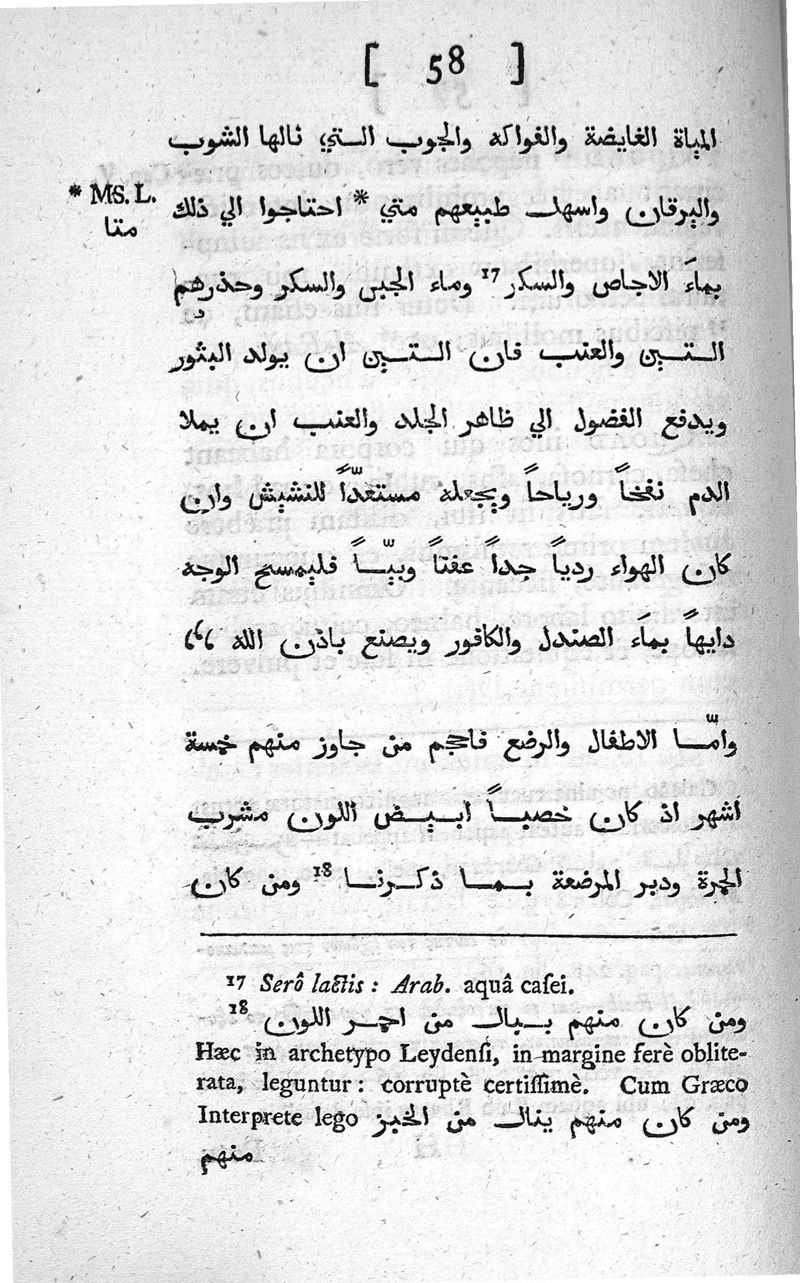 [ 58 ]
المياة الغايضة والفواكه والجبوب التي نالها الشوب
* MS. L.
متا
واليرقان واسهل طبيعهم متي * احتاجوا الي ذلك
بماَء الاجاص والسكر 17 وماء الجبى والسكر وحذرهم
التين والعنب فان التين ان يولد البثور
ويدفع الفضول الي ظاهر الجلد والعنب ان يملا
الدم نفخاً ورياحاً ويجعله مستعدّاً للنشيش وان
كان الهواء ردياً جداً عفناً وبيّاً فليمسح الوجه
دايهاً بماَء الصندل والكافور ويصنع باذن الله
وامّا الاطفال والرضع فاحجم من جاوز منهم خمسة
اشهر اذ كان خصباً ابيض اللون مشرب
الحمرة ودبر المرضعة بما ذكرنا 18 ومن كان
17 Serô lactis : Arab. aquâ casei.
18 ومن كان منهم ببال من احمر اللون
Hæc in archetypo Leydensi, in margine ferè oblite-
rata, leguntur : corruptè certissimè. Cum Græco
Interprete lego ومن كان منهم ينال من الخبز
منهم